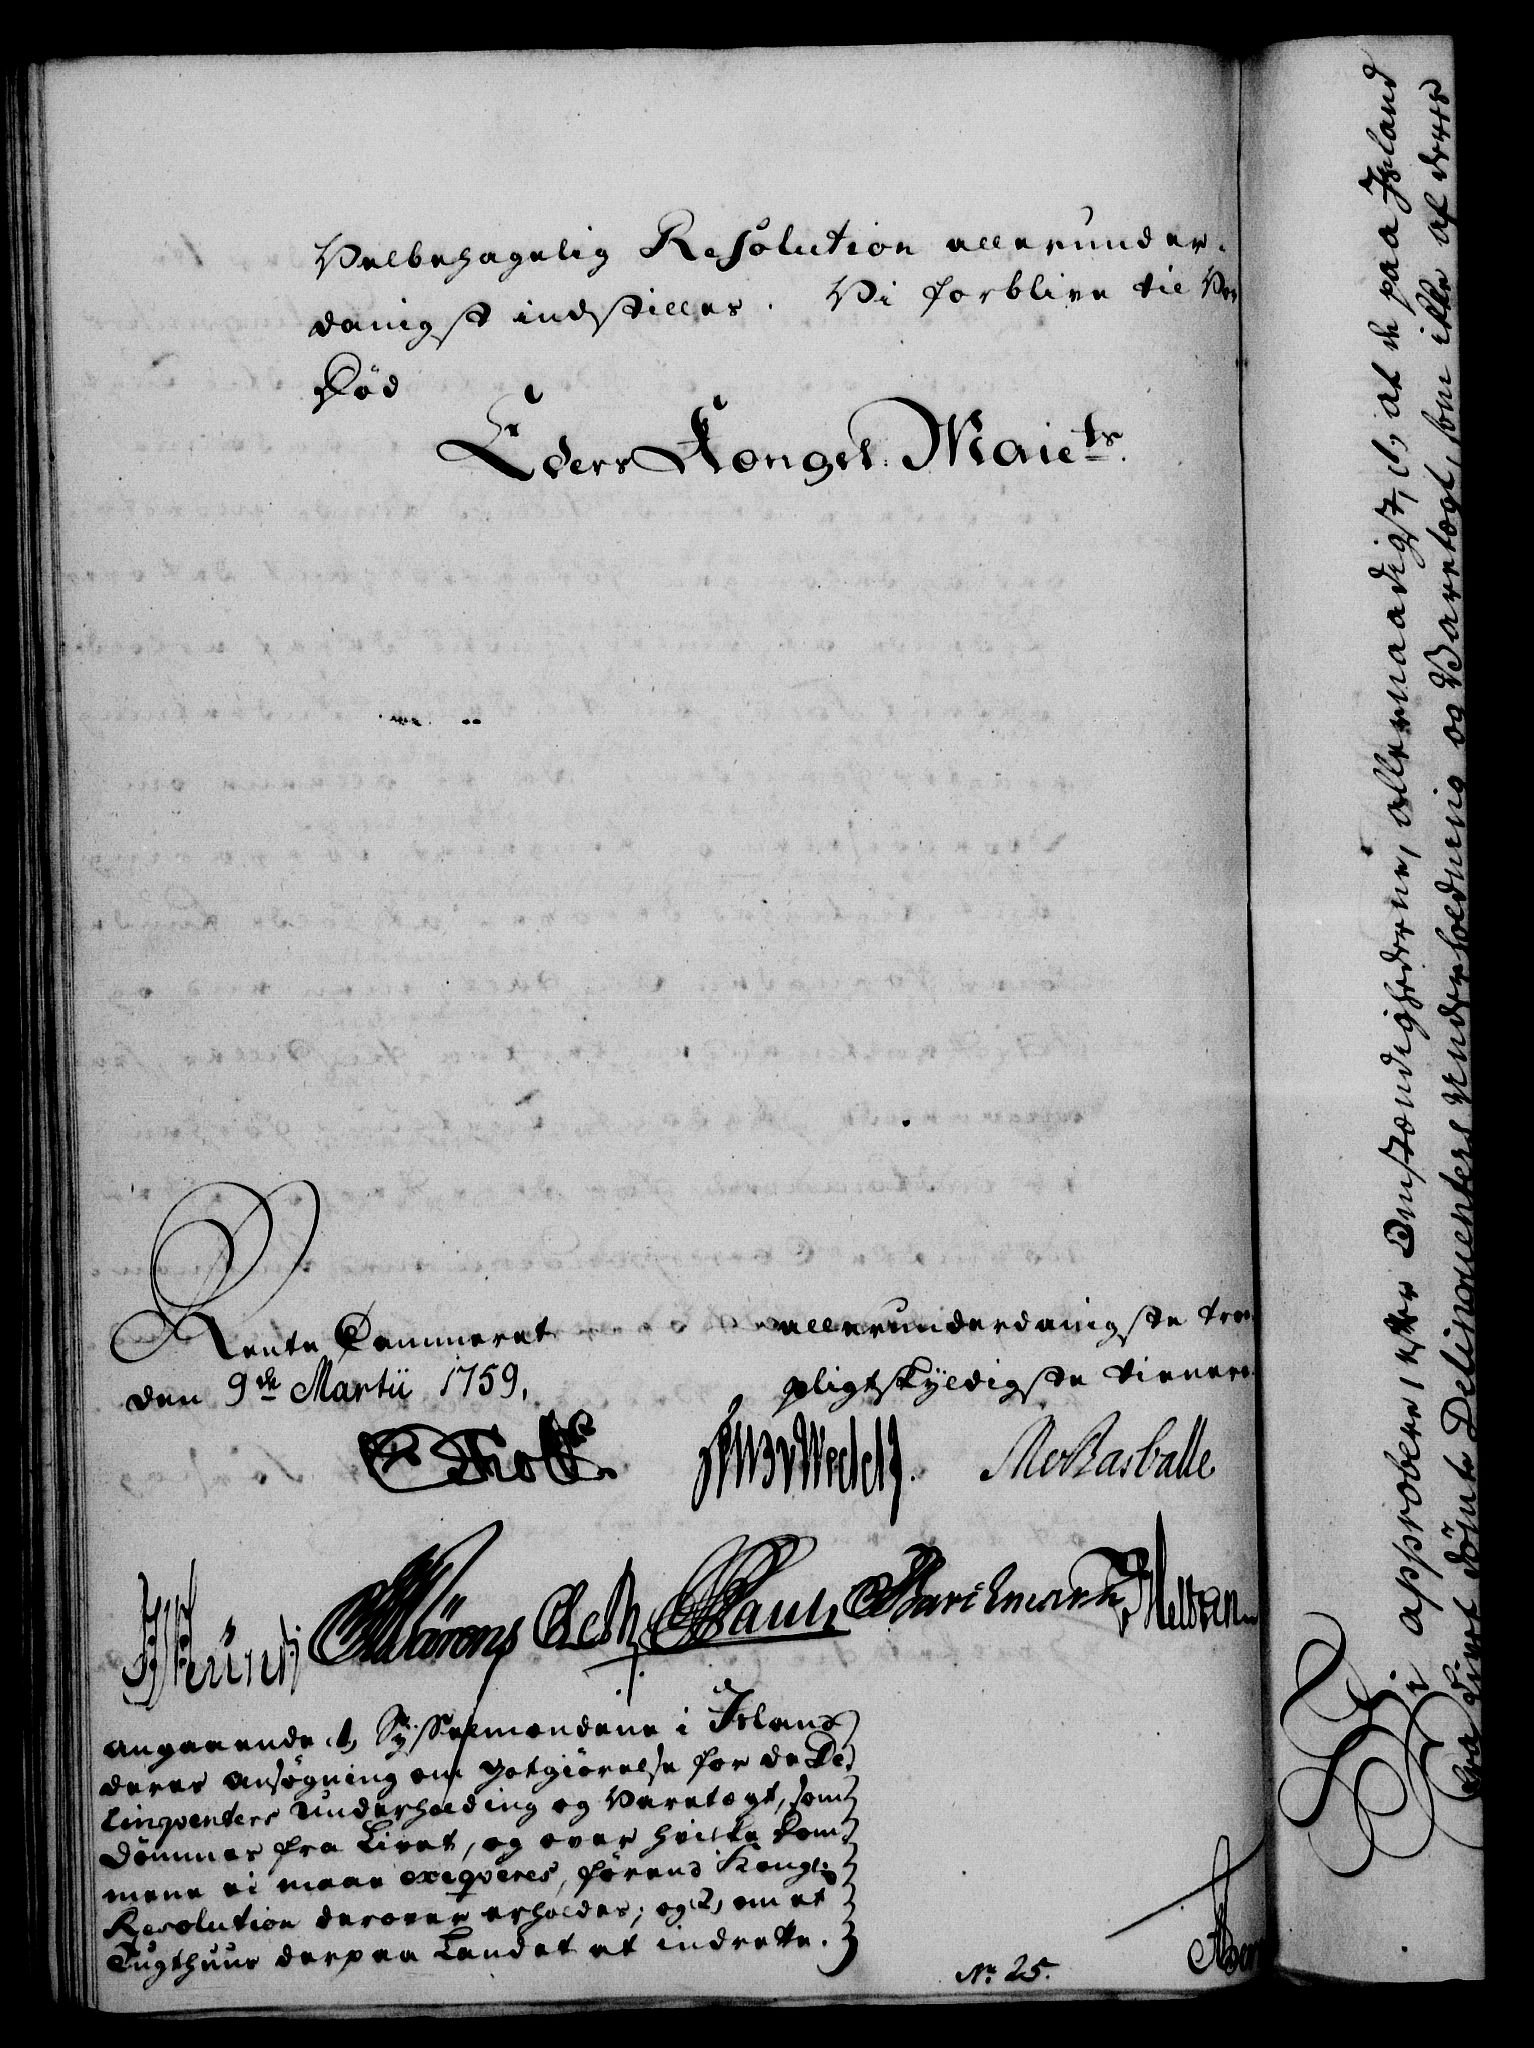 Velbehagelig Resolution allerunder-
danigst indstilles. Vi forblive til
Död
Eders Kongel: Maiets.
Rente Cammeret
den 9de Martii 1759.
allerunderdanigste
pligtskyldigste tienere
angaaende 1, Sysselmændene i Island
deres ansögning om godtgiörelse for de De-
linqventers Underholding og Varetægt, som
dömmes fra Livet, og over hvilke Dom-
mene ei maae exeqveres, förend Kongl:
Resolution derover erholdes; og 2, om et
Tugthuus derpaa Landet at indrette.
No 25.
Vi approbere, efter Omstændighederne, allernaadigst, 1, at de paa Island
fra Livet dömte Delinqventers Underholdning og Varetægt, som ikke af deres